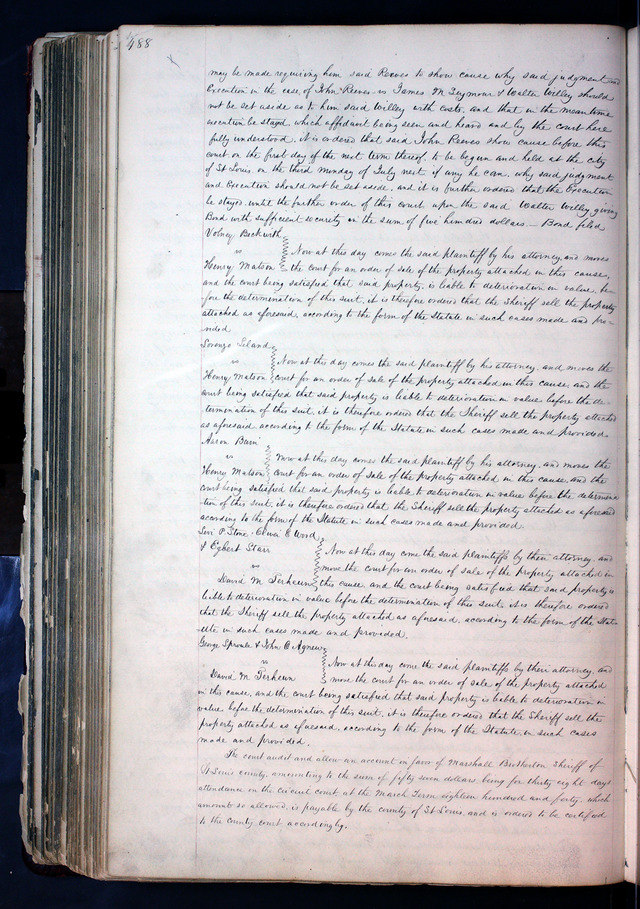 488
may be made requiring him said Reeves to show cause why said judgment and
Execution in the case of John Reeves vs James M Seymour & Walter Willey should
not be set aside as to him said Willey with costs, and that in the meantime
execution be stayed which affidavit being seen and heard and by the court here
fully understood, it is ordered that said John Reeves show cause before this
court on the first day of the next term thereof, to be begun and held at the city
of St Louis, on the third monday of July next if any he can, why said judgment
and Execution should not be set aside, and it is further ordered that the Execution
be stayed until the further order of this court upon the said Walter Willey giving
Bond with sufficient security in the sum of five hundred dollars — Bond filed
Volney Beckwith
vs Now at this day comes the said plaintiff by his attorney, and moves
Henry Matson the court for an order of sale of the property attached in this cause,
and the court being satisfied that said property is liable to deterioration in value, be-
fore the determination of this suit, it is therefore ordered that the Sheriff sell the property
attached as aforesaid, according to the form of the Statute in such cases made and pro-
vided
Lorenzo Leland
vs Now at this day comes the said plaintiff by his attorney, and moves the
Henry Matson court for an order of sale of the property attached in this cause, and the
court being satisfied that said property is liable to deterioration in value before the de-
termination of this suit, it is therefore ordered that the Sheriff sell the property attached
as aforesaid according to the form of the Statute in such cases made and provided
Aaron
vs Now at this day comes the said plaintiff by his attorney, and moves the
Henry Matson court for an order of sale of the property attached in this cause, and the
court being satisfied that said property is liable to deteroration in value before the determina
tion of this suit, it is therefore ordered that the Sheriff sell the property attached as aforesaid
according to the form of the Statute in such cases made and provided.
Levi P. Stone, E Wood
& Egbert Starr
vs Now at this day come the said plaintiffs by their attorney, and
move the court for an order of sale of the property attached in
David M. Terheun this cause and the court being satisfied that said property is
liable to deterioration in value before the determination of this suit, it is therefore ordered
that the Sheriff sell the property attached as aforesaid, according to the form of the Stat-
ute in such cases made and provided.
George Sproule & John C Agnew
vs Now at this day come the said plaintiffs by their attorney, and
David M. Terheun move the court for an order of sale of the property attached
in this cause, and the court being satisfied that said property is liable to deterioration in
value before the determination of this suit, it is therefore ordered that the Sheriff sell the
property attached as aforesaid, according to the form of the Statute, in such cases
made and provided.
The court audit and allow an account in favor of Marshall Brotherton Sheriff of
St Louis county, amounting to the sum of fifty seven dollars being for thirty eight days
attendance on the circuit court at the March Term eighteen hundred and forty, which
amount so allowed, is payable by the county of St Louis, and is ordered to be certified
to the county court accordingly.